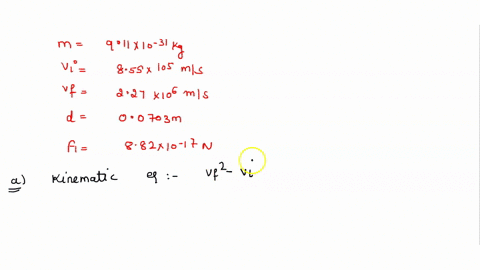 m = 9.11×10⁻³¹ kg
vi = 8.55×10⁵ m/s
vf = 2.27×10⁶ m/s
d = 0.0703m
F1 = 8.82×10⁻¹⁷ N
a) Kinematic eq :- vf² - vi